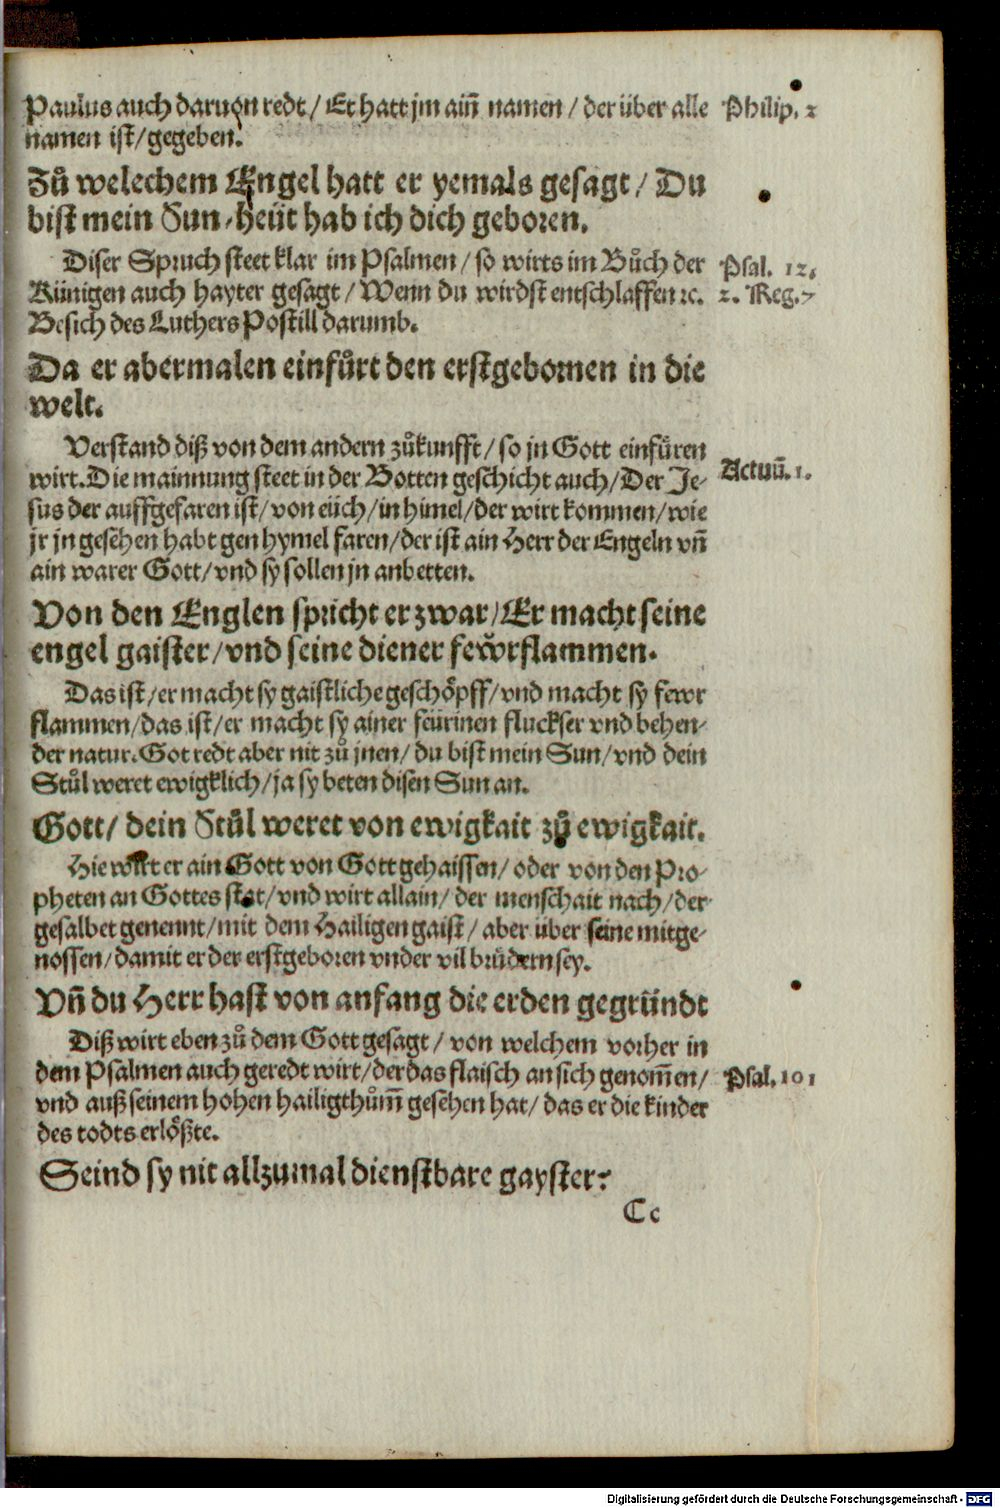 Paulus auch daruon redt / Er hatt jm ain̄ namen / der über alle Philip. 2
namen ist / gegeben.
Zů welechem Engel hatt er yemals gesagt / Du
bist mein Sun / heüt hab ich dich geboren.
Diser Spruch steet klar im Psalmen / so wirts im Bůch der Psal. 12.
Künigen auch hayter gesagt / Wenn du wirdst entschlaffen ⁊c. 2. Reg. 7
Besich des Luthers Postill darumb.
Da er abermalen einfůrt den erstgebornen in die
welt.
Verstand diß von dem andern zůkunfft / so jn Gott einfůren
wirt. Die mainnung steet in der Botten geschicht auch / Der Je- Actuū. 1.
sus der auffgefaren ist / von eüch / in himel / der wirt kommen / wie
jr jn gesehen habt gen hymel faren / der ist ain Herr der Engeln vn̄
ain warer Gott / vnd sy sollen jn anbetten.
Von den Englen spricht er zwar / Er macht seine
engel gaister / vnd seine diener fewrflammen.
Das ist / er macht sy gaistliche geschöpff / vnd macht sy fewr
flammen / das ist / er macht sy ainer feürinen fluckser vnd behen-
der natur. Got redt aber nit zů jnen / du bist mein Sun / vnd dein
Stůl weret ewigklich / ja sy beten disen Sun an.
Gott / dein Stůl weret von ewigkait zů ewigkait.
Hie wirt er ain Gott von Gott gehaissen / oder von den Pro-
pheten an Gottes stat / vnd wirt allain / der menschait nach / der
gesalbet genennt / mit dem Hailigen gaist / aber über seine mitge-
nossen / damit er der erstgeboren vnder vil brůdern sey.
Vn̄ du Herr hast von anfang die erden gegründt
Diß wirt eben zů dem Gott gesagt / von welchem vorher in
dem Psalmen auch geredt wirt / der das flaisch an sich genom̄en / Psal. 101
vnd auß seinem hohen hailigthům̄ gesehen hat / das er die kinder
des todts erlößte.
Seind sy nit allzumal dienstbare gayster?
Cc
Digitalisierung gefördert durch die Deutsche Forschungsgemeinschaft - DFG